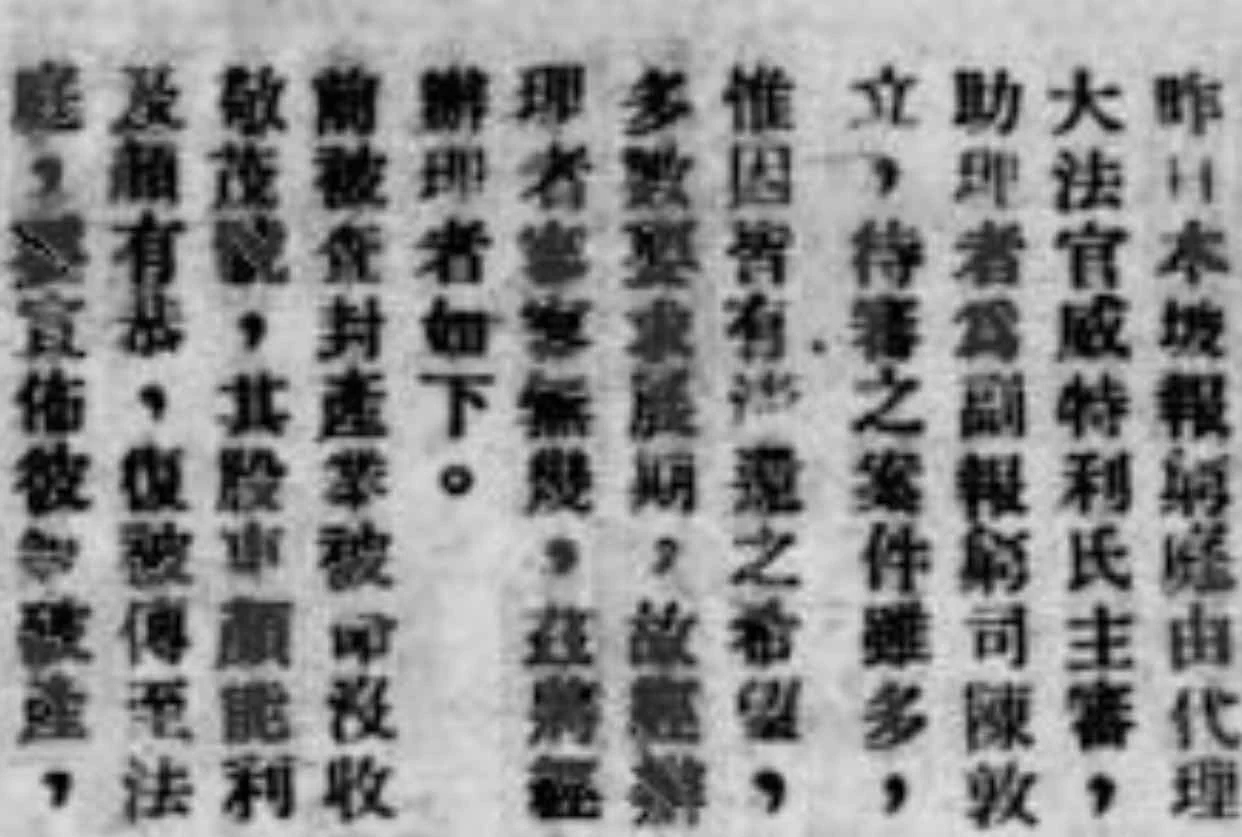 昨日本坡報窮庭由代理
大法官威特利氏主審，
助理者為副報窮司陳敦
立，待審之案件雖多，
惟因皆有清還之希望，
多數要求展期，故經辦
理者寥寥無幾，茲將經
辦理者如下。
前被查封產業被命沒收
敬茂號，其股東顏能利
及顏有恭，復被傳至法
庭，宣佈彼等破產，